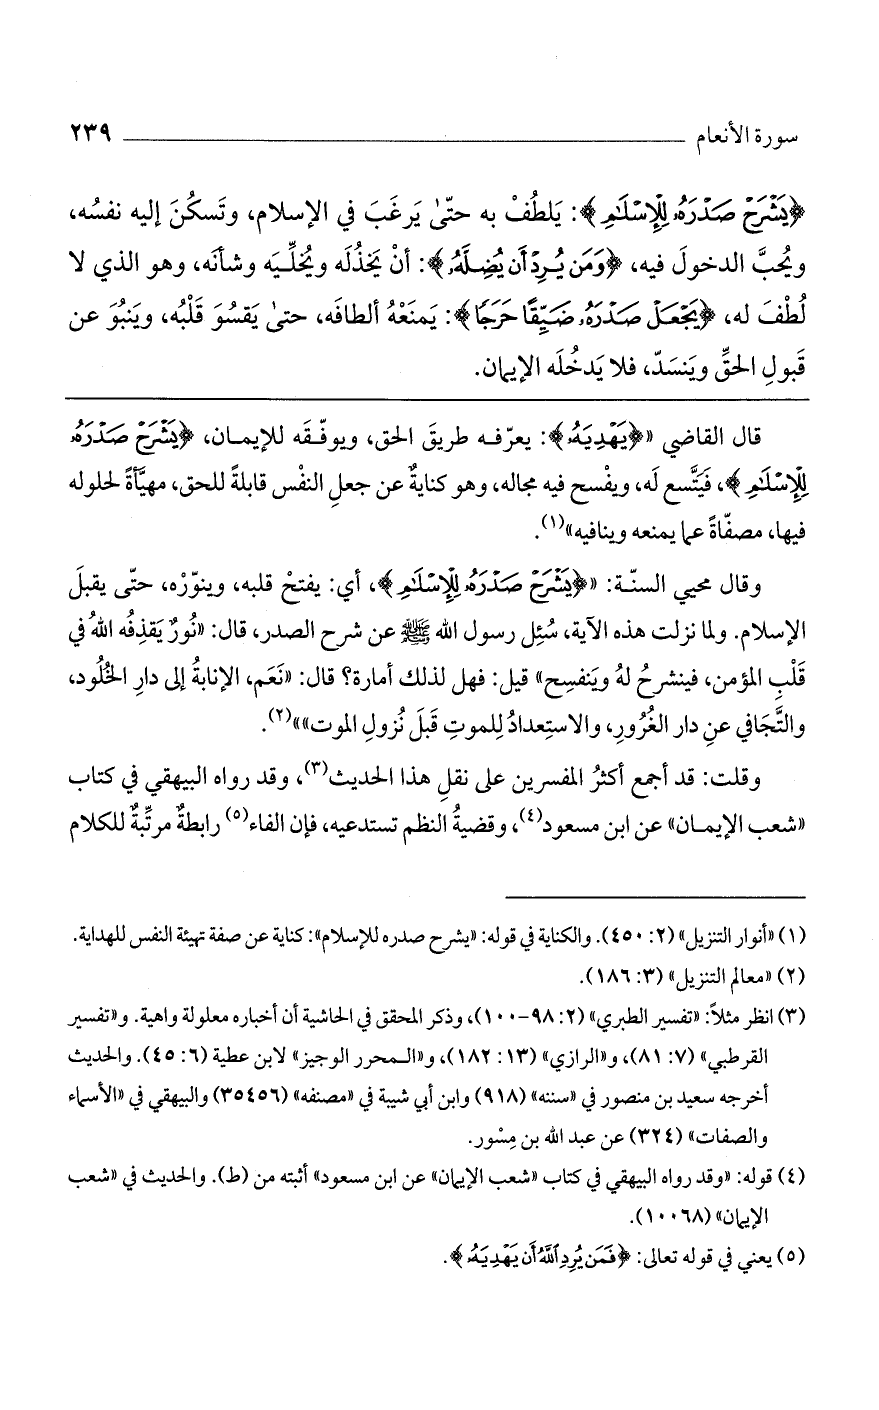 سورة الأنعام ٢٣٩
﴿يَشْرَحْ صَدْرَهُۥ لِلْإِسْلَٰمِ﴾: يَلطُفْ به حتّىٰ يَرغَبَ في الإسلام، وتَسكُنَ إليه نفسُه،
ويُحبَّ الدخولَ فيه، ﴿وَمَن يُرِدْ أَن يُضِلَّهُۥ﴾: أنْ يَخذُلَه ويُخلِّيَه وشأنَه، وهو الذي لا
لُطْفَ له، ﴿يَجْعَلْ صَدْرَهُۥ ضَيِّقًا حَرَجًا﴾: يَمنَعْهُ ألطافَه، حتىٰ يَقسُوَ قَلْبُه، ويَنبُوَ عن
قَبولِ الحقِّ ويَنسَدّ، فلا يَدخُلَه الإيمان.
قال القاضي «﴿يَهْدِيَهُۥ﴾: يعرّفه طريقَ الحق، ويوفّقَه للإيمان، ﴿يَشْرَحْ صَدْرَهُۥ
لِلْإِسْلَٰمِ﴾، فَيَتَّسع لَه، ويفْسح فيه مجاله، وهو كنايةٌ عن جعلِ النفْس قابلةً للحق، مهيَّأةً لحلوله
فيها، مصفّاةً عما يمنعه وينافيه»(١).
وقال محيي السنّة: «﴿يَشْرَحْ صَدْرَهُۥ لِلْإِسْلَٰمِ﴾، أي: يفتحْ قلبه، وينوّرْه، حتّى يقبلَ
الإسلام. ولما نزلت هذه الآية، سُئِل رسول الله ﷺ عن شرح الصدر، قال: «نُورٌ يَقذِفُه اللهُ في
قَلْبِ المؤمن، فينشرحُ لهُ ويَنفسِح» قيل: فهل لذلك أمارة؟ قال: «نَعَم، الإنابةُ إلى دارِ الخُلُود،
والتَّجَافي عنِ دار الغُرُورِ، والاستِعدادُ لِلموتِ قَبلَ نُزولِ الموت»»(٢).
وقلت: قد أجمع أكثرُ المفسرين على نقلِ هذا الحديث(٣)، وقد رواه البيهقي في كتاب
«شعب الإيمان» عن ابن مسعود(٤)، وقضيةُ النظم تستدعيه، فإن الفاء(٥) رابطةٌ مرتِّبةٌ للكلام
(١) «أنوار التنزيل» (٢: ٤٥٠). والكناية في قوله: «يشرح صدره للإسلام»: كناية عن صفة تهيئة النفس للهداية.
(٢) «معالم التنزيل» (٣: ١٨٦).
(٣) انظر مثلاً: «تفسير الطبري» (٢: ٩٨-١٠٠)، وذكر المحقق في الحاشية أن أخباره معلولة واهية. و«تفسير
القرطبي» (٧: ٨١)، و«الرازي» (١٣: ١٨٢)، و«المحرر الوجيز» لابن عطية (٦: ٤٥). والحديث
أخرجه سعيد بن منصور في «سننه» (٩١٨) وابن أبي شيبة في «مصنفه» (٣٥٤٥٦) والبيهقي في «الأسماء
والصفات» (٣٢٤) عن عبد الله بن مِسْور.
(٤) قوله: «وقد رواه البيهقي في كتاب «شعب الإيمان» عن ابن مسعود» أثبته من (ط). والحديث في «شعب
الإيمان» (١٠٠٦٨).
(٥) يعني في قوله تعالى: ﴿فَمَن يُرِدِ ٱللَّهُ أَن يَهْدِيَهُۥ﴾.